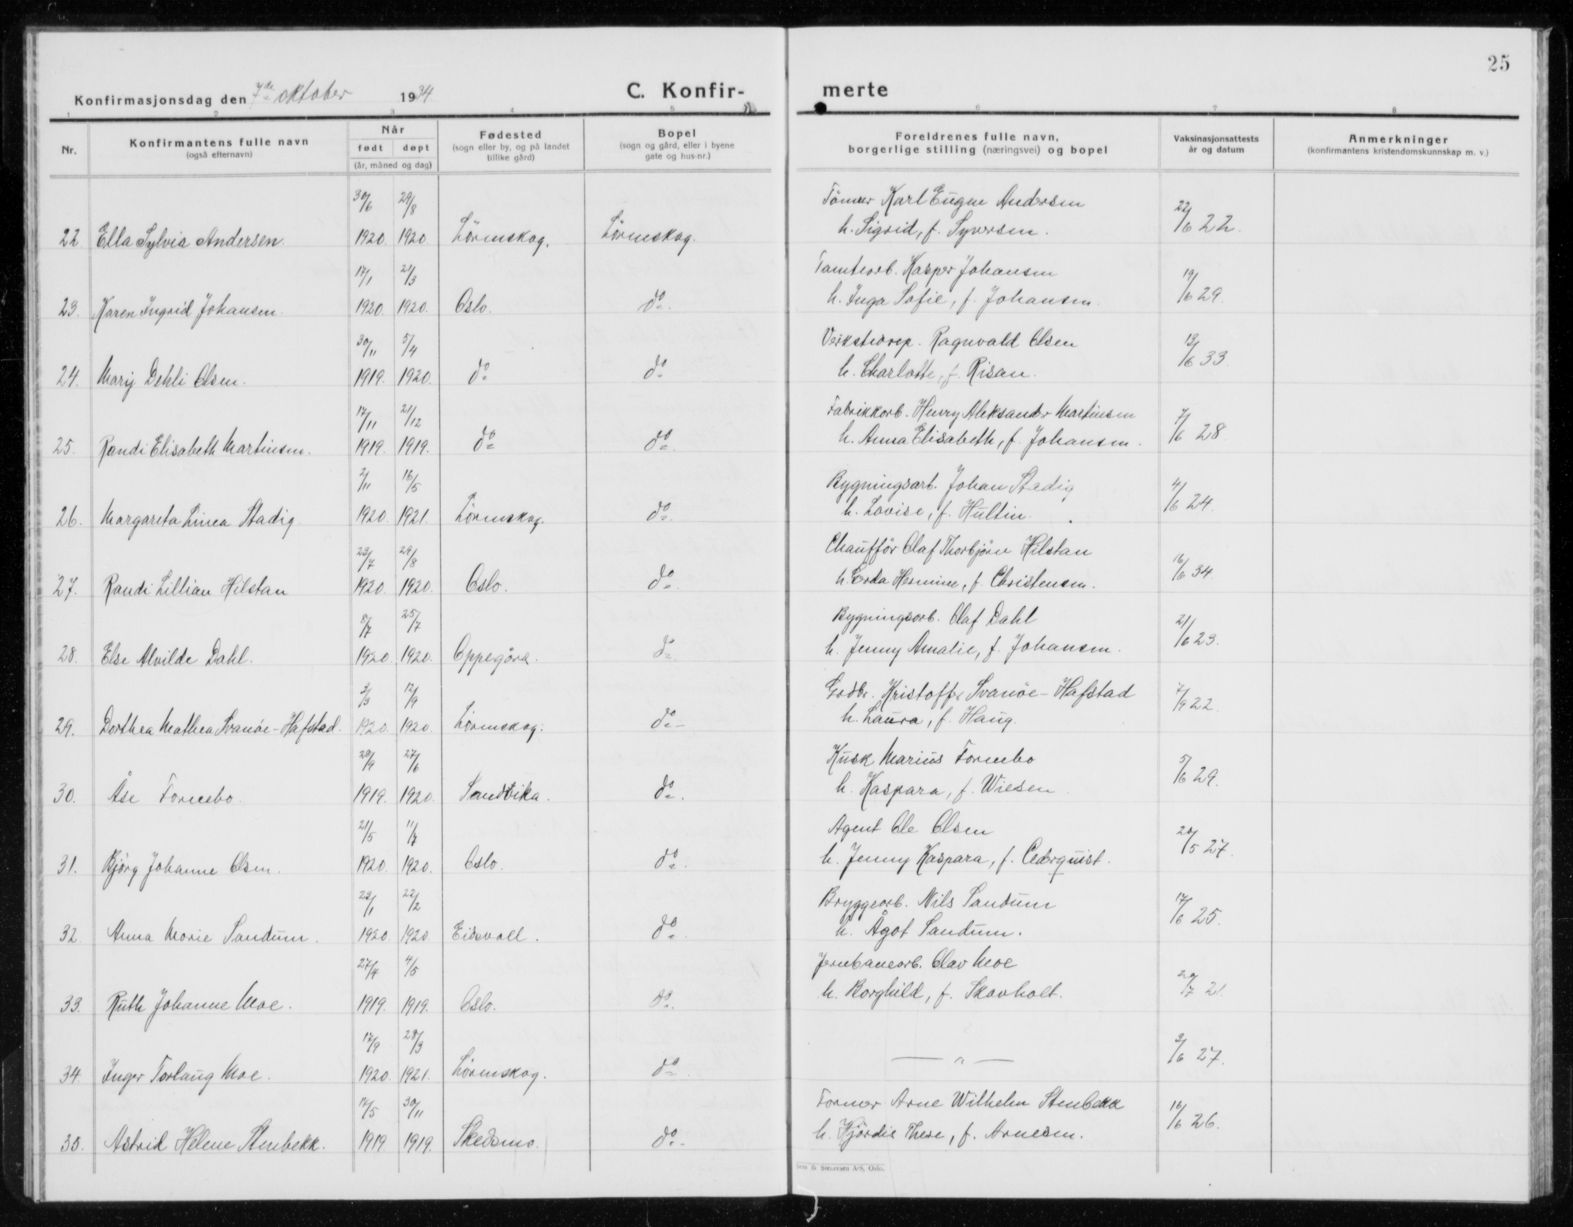 25
Konfirmasjonsdag den 7de oktober 1934
C. Konfir-
merte
1 2 3 4 5 6 7 8
Nr.
Konfirmantens fulle navn
(også etternavn)
Når
født døpt
(år, måned og dag)
Fødested
(sogn eller by, og på landet
tillike gård)
Bopel
(sogn og gård, eller i byene
gate og hus-nr.)
Foreldrenes fulle navn,
borgerlige stilling (næringsvei) og bopel
Vaksinasjonsattests
år og datum
Anmerkninger
(konfirmantens kristendomskunnskap m. v.)
30/6 29/8 Tømmer Karl Eugen Andersen 22/6 22.
22 Ella Sylvia Andersen. 1920 1920 Lørenskog. Lørenskog. h. Sigrid, f. Syversen.
17/1 21/3 Tomtearb. Kasper Johansen 19/6 29.
23. Karen Ingrid Johansen. 1920. 1920. Oslo. do. h. Inga Sofie, f. Johansen.
30/11 5/4 Verkstedarp. Ragnvald Olsen 13/6 33
24. Mary Dehli Olsen. 1919. 1920. do do h. Charlotte, f. Risan.
17/11 21/12 Fabrikkarb. Henry Aleksander Martinsen 7/6 28
25. Randi Elisabeth Martinsen. 1919. 1919. do do. h. Anna Elisabeth, f. Johansen.
2/11 16/5 Bygningsarb. Johan Stadig 4/6 24.
26. Margareta Linea Stadig 1920. 1921. Lørenskog. do. h. Lovise, f. Hultin.
23/7 29/8 Chauffør Olaf Thorbjørn Hilstan 16/6 34.
27. Randi Lillian Hilstan 1920. 1920. Oslo. do. h. Gerda Hermine, f. Christensen.
8/7 25/7 Bygningsarb. Olaf Dahl 21/6 23.
28. Else Alvilde Dahl. 1920 1920. Oppegård. do h. Jenny Amalie, f. Johansen.
3/3 12/9 Grdbr. Kristoffer Svanøe-Hafstad 7/9 22.
29. Dorthea Mathea Svanøe-Hafstad. 1920. 1920. Lørenskog. do- h. Laura, f. Haug.
29/9 27/6 Kusk Marius Fornebo 5/6 29.
30. Åse Fornebo. 1919. 1920. Sandvika. do. h. Kaspara, f. Wiesen.
21/5 11/7 Agent Ole Olsen 28/5 27.
31. Bjørg Johanne Olsen. 1920. 1920. Oslo. do. h. Jenny Kaspara, f. Cederquist.
23/1 22/2 Bryggearb. Nils Sandum 17/6 25.
32. Anna Marie Sandum. 1920 1920 Eidsvoll. do. h. Ågot Sandum.
27/4 4/5 Jernbanearb. Olav Moe 20/7 21.
33. Ruth Johanne Moe. 1919. 1919. Oslo. do. h. Borghild, f. Skovholt.
17/9 28/3 — " — 3/6 27.
34 Inger Torlaug Moe. 1920. 1921. Lørenskog. do.
17/5 30/11 Former Arne Wilhelm Stenbekk 16/6 26.
35. Astrid Helene Stenbekk. 1919 1919. Skedsmo. do. h. Hjørdis Therese, f. Arnesen.
& Sørensen A/S, Oslo.